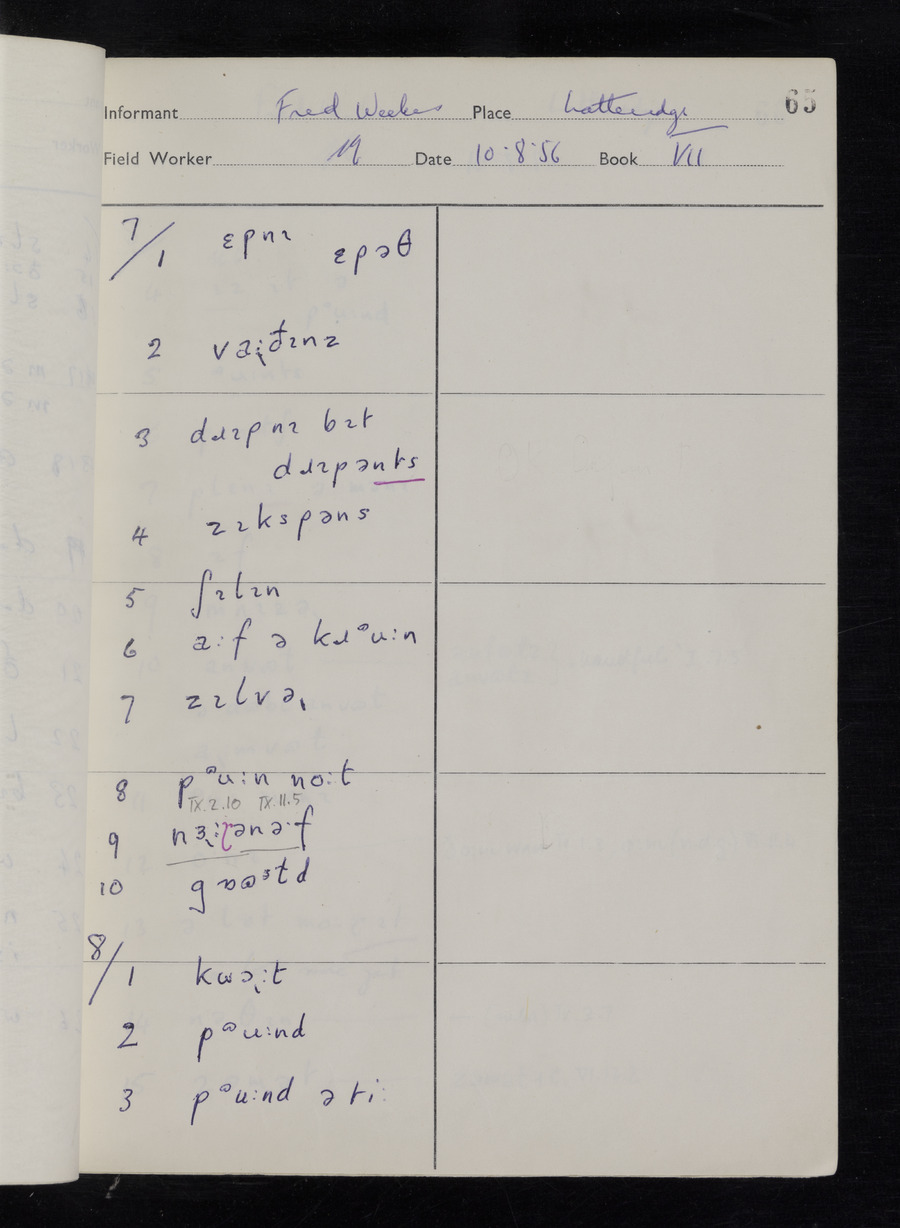 65
Informant Fred Weekes Place Latteridge
Field Worker M Date 10·8·56 Book VII
7/1 ɛpnɪ ɛpəθ
2 vaːɹðɪnz
3 dɹɪpnɪ bɪt
dɹɪpənts
4 zɪkspəns
5 ʃɪlɪn
6 aːf ə kɹᵊuːn
7 zɪlvəɹ
8 pᵊuːn noːt
IX.2.10 IX.11.5
9 nɜːɽənəˑf
10 gɒəᶾtd
8/1 kwəɹːt
2 pᵊuːnd
3 pᵊuːnd ə tiː